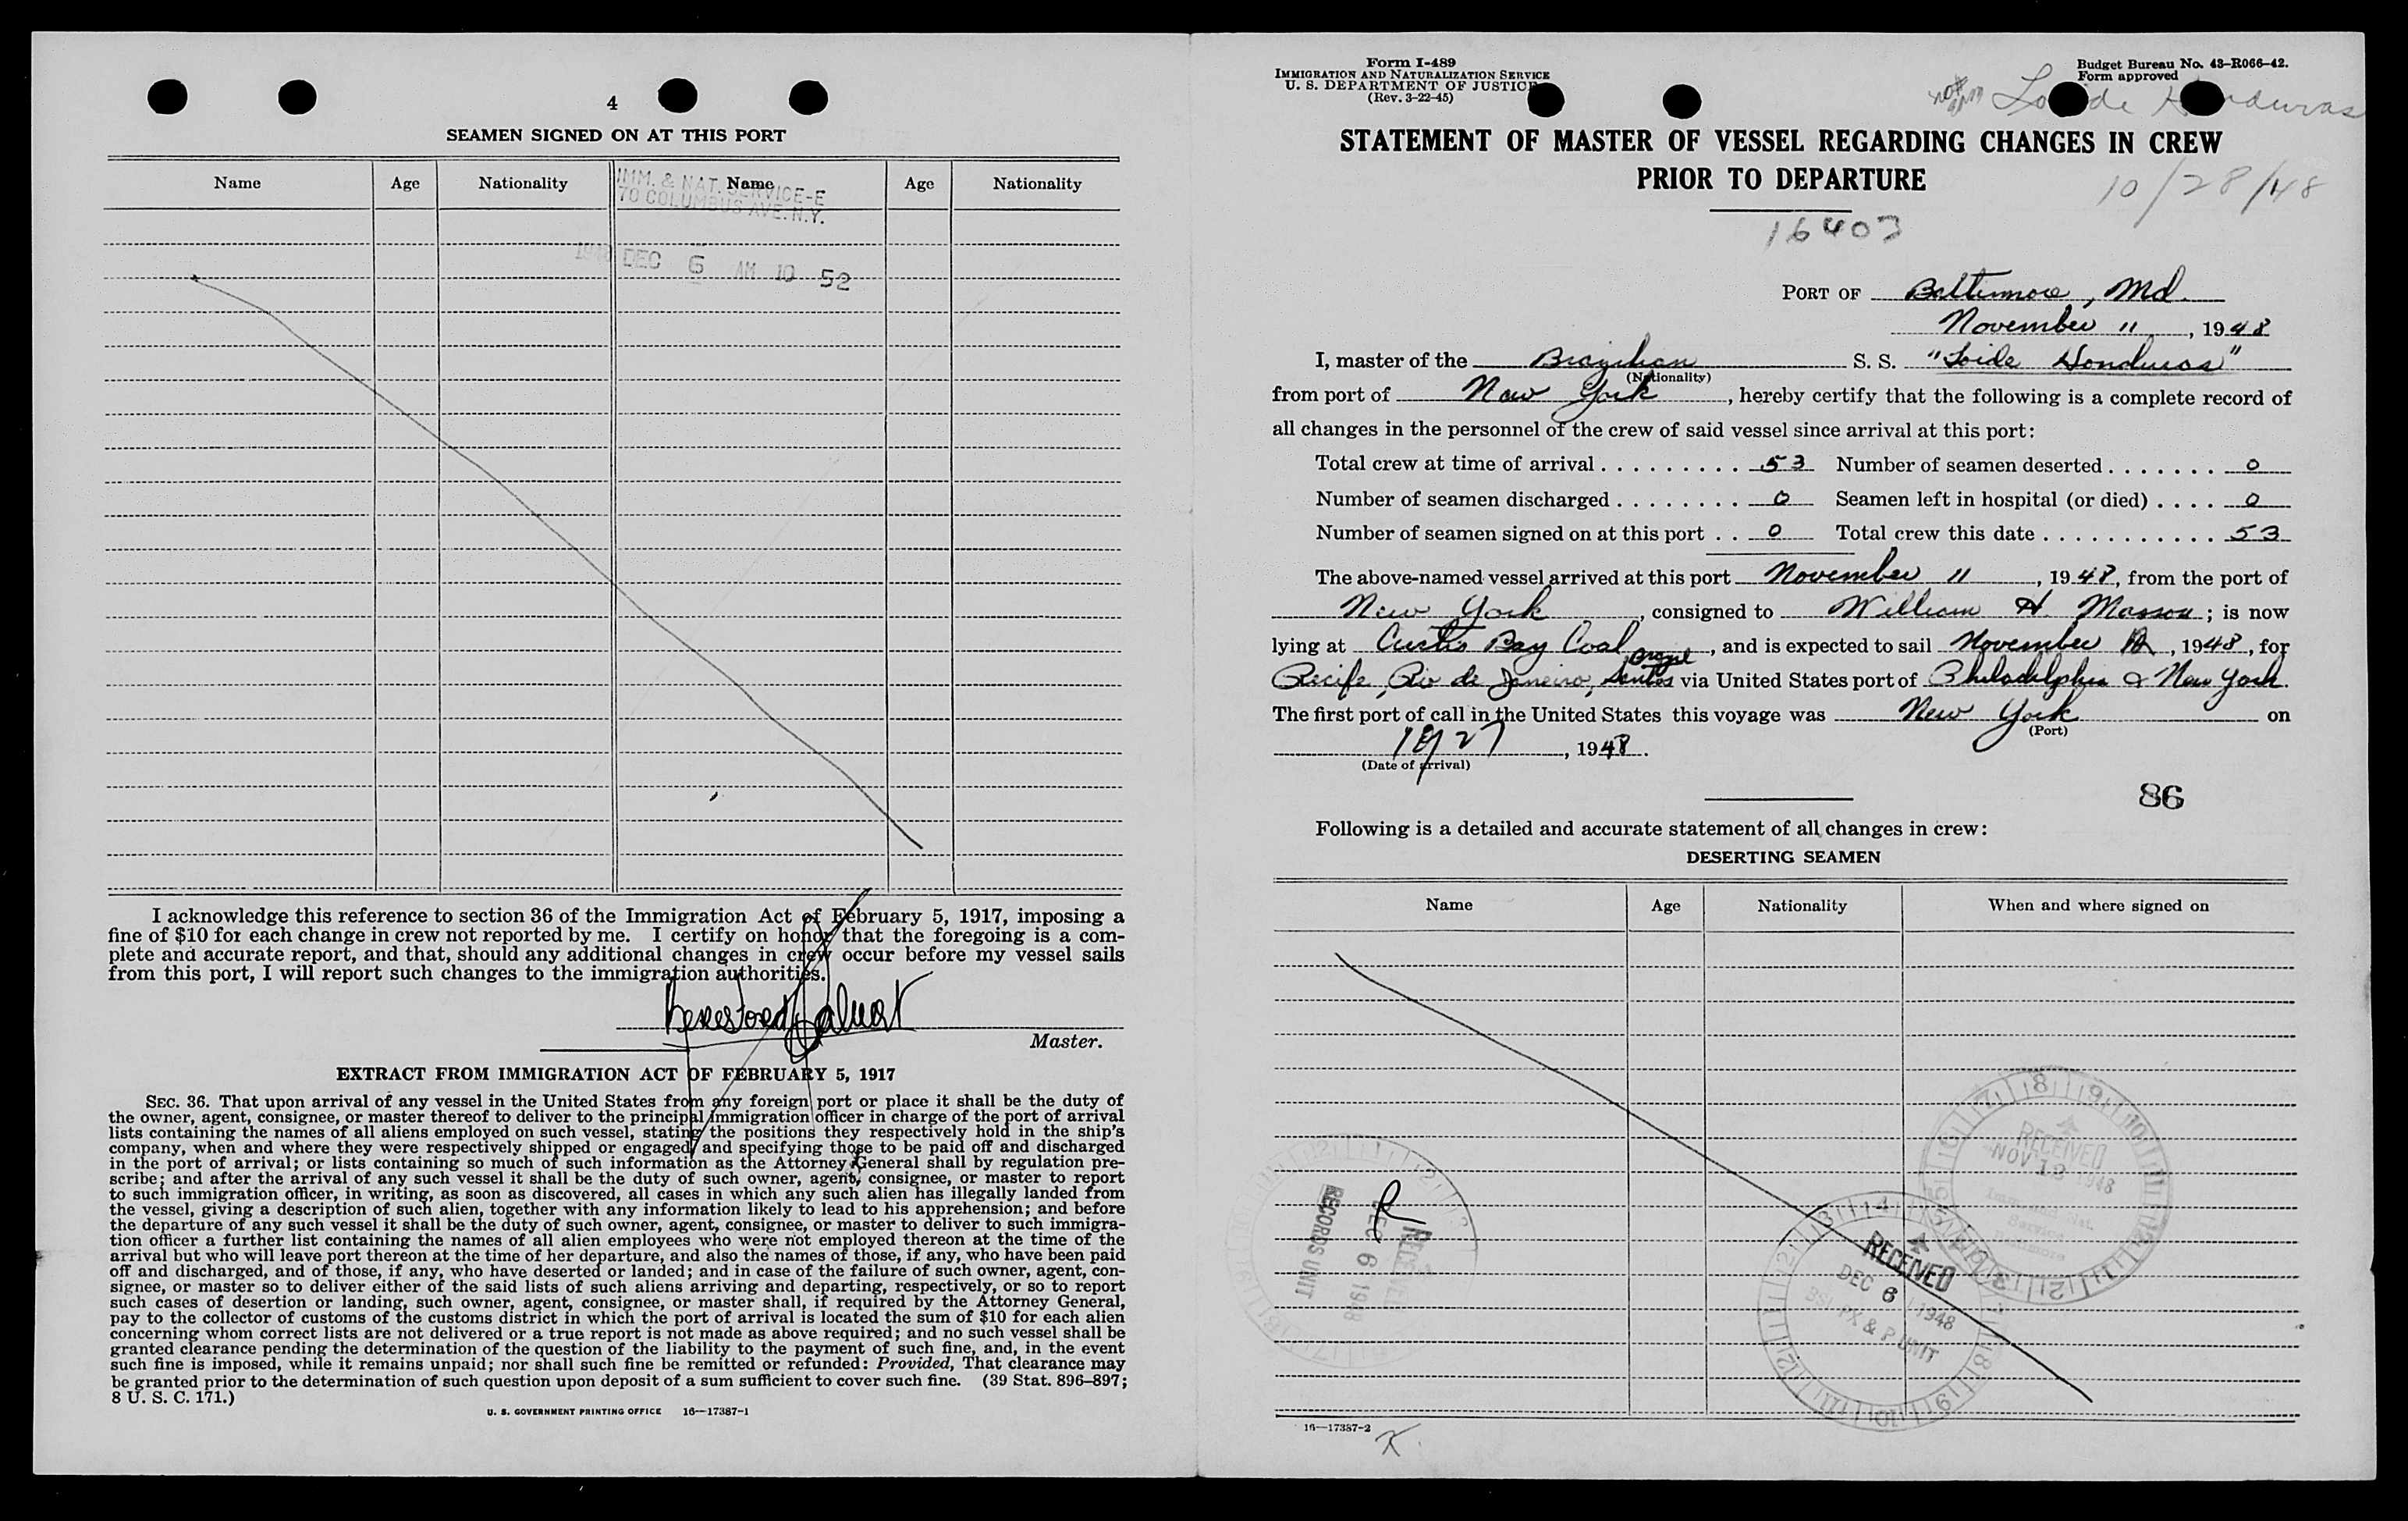 4
SEAMEN SIGNED ON AT THIS PORT
Name Age Nationality Name Age Nationality
IMM. & NAT. SERVICE-E
70 COLUMBUS AVE. N.Y.
1948 DEC 6 AM 10 52
I acknowledge this reference to section 36 of the Immigration Act of February 5, 1917, imposing a
fine of $10 for each change in crew not reported by me. I certify on honor that the foregoing is a com-
plete and accurate report, and that, should any additional changes in crew occur before my vessel sails
from this port, I will report such changes to the immigration authorities.
Master.
EXTRACT FROM IMMIGRATION ACT OF FEBRUARY 5, 1917
SEC. 36. That upon arrival of any vessel in the United States from any foreign port or place it shall be the duty of
the owner, agent, consignee, or master thereof to deliver to the principal immigration officer in charge of the port of arrival
lists containing the names of all aliens employed on such vessel, stating the positions they respectively hold in the ship's
company, when and where they were respectively shipped or engaged, and specifying those to be paid off and discharged
in the port of arrival; or lists containing so much of such information as the Attorney General shall by regulation pre-
scribe; and after the arrival of any such vessel it shall be the duty of such owner, agent, consignee, or master to report
to such immigration officer, in writing, as soon as discovered, all cases in which any such alien has illegally landed from
the vessel, giving a description of such alien, together with any information likely to lead to his apprehension; and before
the departure of any such vessel it shall be the duty of such owner, agent, consignee, or master to deliver to such immigra-
tion officer a further list containing the names of all alien employees who were not employed thereon at the time of the
arrival but who will leave port thereon at the time of her departure, and also the names of those, if any, who have been paid
off and discharged, and of those, if any, who have deserted or landed; and in case of the failure of such owner, agent, con-
signee, or master so to deliver either of the said lists of such aliens arriving and departing, respectively, or so to report
such cases of desertion or landing, such owner, agent, consignee, or master shall, if required by the Attorney General,
pay to the collector of customs of the customs district in which the port of arrival is located the sum of $10 for each alien
concerning whom correct lists are not delivered or a true report is not made as above required; and no such vessel shall be
granted clearance pending the determination of the question of the liability to the payment of such fine, and, in the event
such fine is imposed, while it remains unpaid; nor shall such fine be remitted or refunded: Provided, That clearance may
be granted prior to the determination of such question upon deposit of a sum sufficient to cover such fine. (39 Stat. 896–897;
8 U. S. C. 171.)
U. S. GOVERNMENT PRINTING OFFICE 16—17387-1
Form I-489
IMMIGRATION AND NATURALIZATION SERVICE
U. S. DEPARTMENT OF JUSTICE
(Rev. 3-22-45)
Budget Bureau No. 43-R066-42.
Form approved
Loide Honduras
STATEMENT OF MASTER OF VESSEL REGARDING CHANGES IN CREW
PRIOR TO DEPARTURE
10/28/48
16403
PORT OF Baltimore, Md.
November 11, 1948
I, master of the Brazilian S. S. "Loide Honduras"
(Nationality)
from port of New York, hereby certify that the following is a complete record of
all changes in the personnel of the crew of said vessel since arrival at this port:
Total crew at time of arrival . . . . . . . . . 53 Number of seamen deserted . . . . . . . 0
Number of seamen discharged . . . . . . . . 0 Seamen left in hospital (or died) . . . . 0
Number of seamen signed on at this port . . 0 Total crew this date . . . . . . . . . . . 53
The above-named vessel arrived at this port November 11, 1948, from the port of
New York, consigned to William H Masson; is now
lying at Curtis Bay Coal, and is expected to sail November 12, 1948, for
Recife, Rio de Janeiro, Santos via United States port of Philadelphia & New York.
The first port of call in the United States this voyage was New York on
(Port)
10/27, 1948.
(Date of arrival)
86
Following is a detailed and accurate statement of all changes in crew:
DESERTING SEAMEN
Name Age Nationality When and where signed on
RECEIVED
NOV 12 1948
RECEIVED
DEC 6 1948
RECORDS UNIT
R
RECEIVED
DEC 6 1948
BSI PX & P UNIT
16—17387-2
K